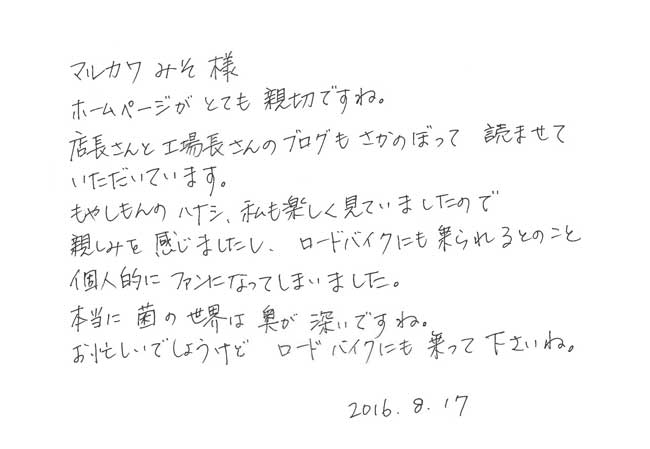 マルカワ みそ 様
ホームページが とても 親切ですね。
店長さんと 工場長さんのブログも さかのぼって 読ませて
いただいています。
もやしもんの ハナシ、私も楽しく見ていましたので
親しみを 感じましたし、 ロードバイクにも 乗られるとのこと
個人的に ファンになってしまいました。
本当に 菌の世界は 奥が 深いですね。
お忙しいでしょうけど ロードバイクにも 乗って下さいね。
2016. 8. 17